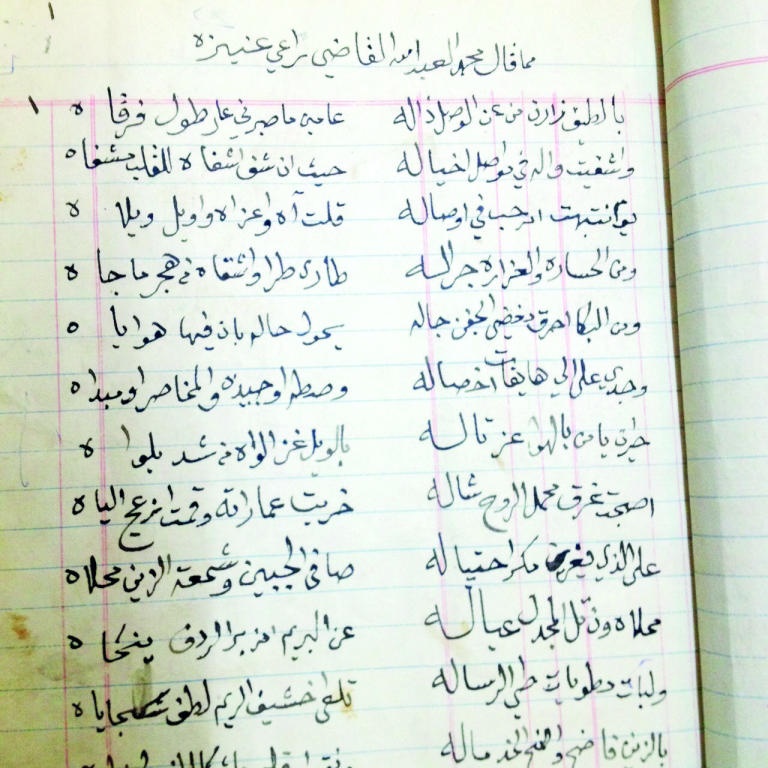 مما قال محمد العبدالله القاضي راعي عنيزه
بالطيف زارن من عن الوصل ذاله عامين ما صبرني عار طول فرقا ه
واشفيت واله في تواصل اخياله حيث ان شف اشفاه للقلب مشفاه
يوم انتبهت ارحب في اوصاله قلت آه واعزاه واويل ويلا ه
ومن الحساره والعزاره جراله طاري طرا واشقاه في هجر ما جا ه
ومن البكا احرق مغضي الجفن جاله يحول حاله بان فيها هوايا ه
وجدي على الي هايفات اخصاله وصطه اوجيده والمخاصر او مبداه
حرت يا من بالهوا عز تاله يالويل عز الواه من شد بلوا ه
اصبحت غرق محمل الروح شاله خربت عماراته وقمت انزعج الياه
على الذي مكر احتياله صافي الجبين وشمعة الزين محلاه
محلاه ونثل المجدل عياله عن البريم امزبر الردف ينحا ه
ولبات مطويات طي الرساله تلقى خشيف الريم لطف سجايا ه
بالزين قاضي والخد ماله